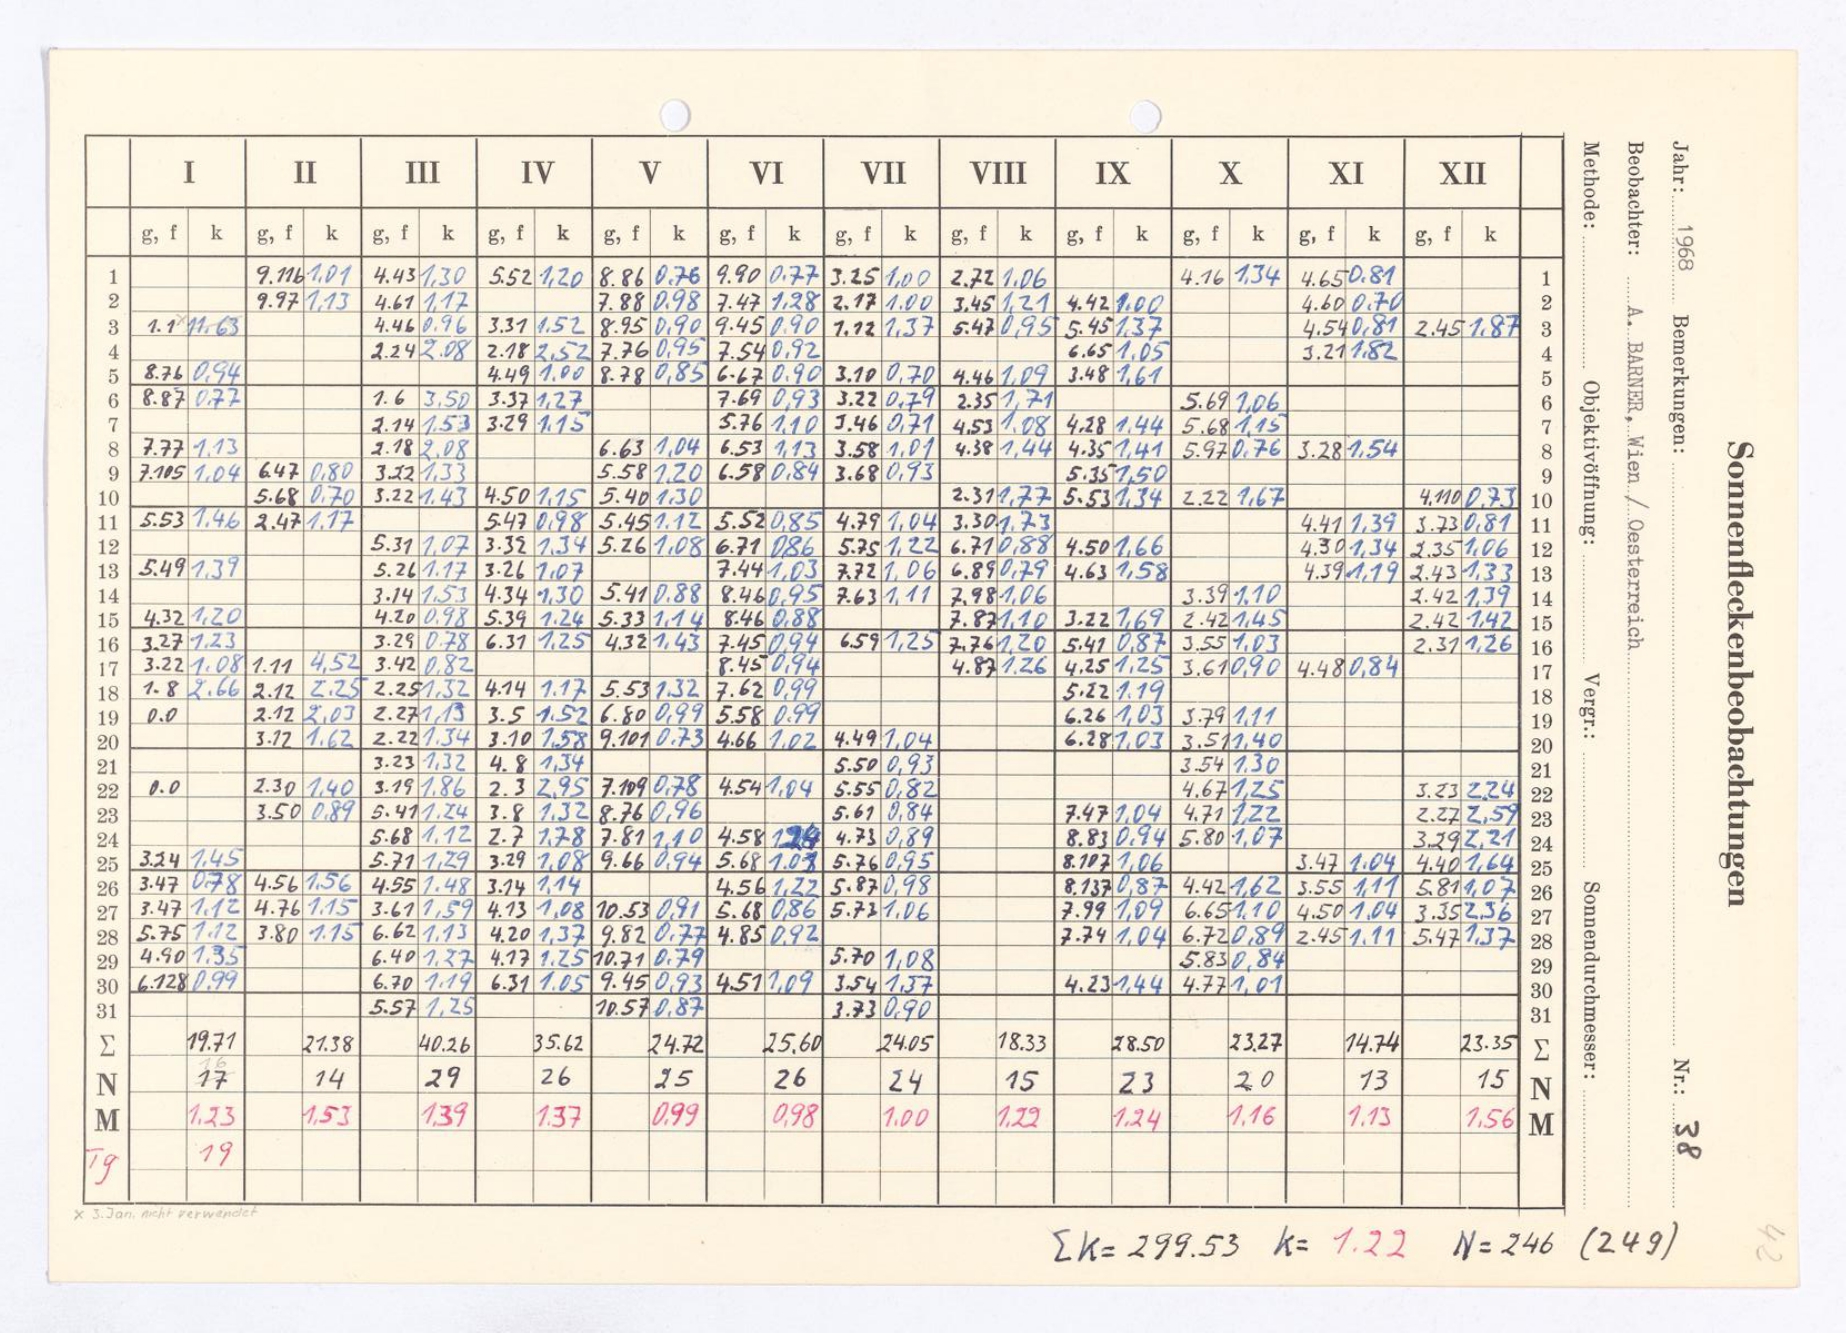 I II III IV V VI VII VIII IX X XI XII
g, f k g, f k g, f k g, f k g, f k g, f k g, f k g, f k g, f k g, f k g, f k g, f k
1 9.116 1,01 4.43 1,30 5.52 1,20 8.86 0,76 9.90 0,77 3.25 1,00 2.72 1,06 4.16 1,34 4.65 0,81 1
2 9.97 1,13 4.61 1,17 7.88 0,98 7.47 1,28 2.17 1.00 3.45 1,21 4.42 1,00 4.60 0,70 2
3 1.1 x 11,63 4.46 0,96 3.31 1.52 8.95 0,90 9.45 0,90 1.12 1,37 5.47 0,95 5.45 1,37 4.54 0,81 2.45 1.87 3
4 2.24 2,08 2.18 2,52 7.76 0,95 7.54 0,92 6.65 1,05 3.21 1,82 4
5 8.76 0,94 4.49 1,00 8.78 0,85 6.67 0,90 3.10 0,70 4.46 1,09 3.48 1,61 5
6 8.87 0,77 1.6 3,50 3.37 1,27 7.69 0,93 3.22 0,79 2.35 1,71 5.69 1,06 6
7 2.14 1.53 3.29 1.15 5.76 1,10 3.46 0,71 4.53 1,08 4.28 1,44 5.68 1,15 7
8 7.77 1,13 2.18 2,08 6.63 1,04 6.53 1,13 3.58 1,01 4.38 1,44 4.35 1,41 5.97 0,76 3.28 1,54 8
9 7.105 1,04 6.47 0,80 3.22 1,33 5.58 1,20 6.58 0,84 3.68 0,93 5.35 1,50 9
10 5.68 0,70 3.22 1.43 4.50 1,15 5.40 1.30 2.31 1,77 5.53 1,34 2.22 1,67 4.110 0,73 10
11 5.53 1.46 2.47 1,17 5.47 0,98 5.45 1.12 5.52 0,85 4.79 1,04 3.30 1,73 4.41 1,39 3.73 0,81 11
12 5.31 1,07 3.32 1,34 5.26 1,08 6.71 0,86 5.75 1,22 6.71 0,88 4.50 1,66 4.30 1,34 2.35 1,06 12
13 5.49 1,39 5.26 1.17 3.26 1,07 7.44 1,03 7.72 1,06 6.89 0,79 4.63 1,58 4.39 1,19 2.43 1,33 13
14 3.14 1.53 4.34 1,30 5.41 0.88 8.46 0,95 7.63 1,11 7.98 1,06 3.39 1,10 2.42 1,39 14
15 4.32 1,20 4.20 0,98 5.39 1.24 5.33 1,14 8.46 0,88 7.87 1,10 3.22 1,69 2.42 1,45 2.42 1,42 15
16 3.27 1,23 3.29 0,78 6.31 1,25 4.32 1,43 7.45 0,94 6.59 1,25 7.76 1,20 5.41 0,87 3.55 1,03 2.31 1,26 16
17 3.22 1.08 1.11 4,52 3.42 0,82 8.45 0,94 4.87 1.26 4.25 1,25 3.61 0,90 4.48 0,84 17
18 1.8 2,66 2.12 2,25 2.25 1,32 4.14 1.17 5.53 1.32 7.62 0,99 5.22 1.19 18
19 0.0 2.12 2,03 2.27 1,13 3.5 1.52 6.80 0,99 5.58 0.99 6.26 1,03 3.79 1,11 19
20 3.12 1.62 2.22 1,34 3.10 1,58 9.101 0.73 4.66 1.02 4.49 1,04 6.28 1,03 3.51 1,40 20
21 3.23 1,32 4.8 1,34 5.50 0,93 3.54 1.30 21
22 0.0 2.30 1,40 3.19 1,86 2.3 2,95 7.109 0,78 4.54 1,04 5.55 0,82 4.67 1,25 3.23 2.24 22
23 3.50 0,89 5.41 1,24 3.8 1,32 8.76 0,96 5.61 0,84 7.47 1,04 4.71 1,22 2.27 2,59 23
24 5.68 1,12 2.7 1,78 7.81 1,10 4.58 1,24 4.73 0,89 8.83 0,94 5.80 1,07 3.29 2,21 24
25 3.24 1,45 5.71 1,29 3.29 1,08 9.66 0,94 5.68 1.03 5.76 0,95 8.107 1,06 3.47 1.04 4.40 1,64 25
26 3.47 0,78 4.56 1,56 4.55 1.48 3.14 1,14 4.56 1,22 5.87 0,98 8.137 0,87 4.42 1,62 3.55 1,11 5.81 1,07 26
27 3.47 1,12 4.76 1.15 3.61 1,59 4.13 1,08 10.53 0,91 5.68 0,86 5.73 1,06 7.99 1,09 6.65 1,10 4.50 1,04 3.35 2,36 27
28 5.75 1.12 3.80 1.15 6.62 1,13 4.20 1,37 9.82 0,77 4.85 0,92 7.74 1,04 6.72 0,89 2.45 1.11 5.47 1,37 28
29 4.90 1.35 6.40 1,27 4.17 1.25 10.71 0,79 5.70 1,08 5.83 0,84 29
30 6.128 0,99 6.70 1,19 6.31 1.05 9.45 0,93 4.51 1,09 3.54 1,37 4.23 1,44 4.77 1,01 30
31 5.57 1,25 10.57 0,87 3.73 0,90 31
Σ 19.71 21.38 40.26 35.62 24.72 25.60 24.05 18.33 28.50 23.27 14.74 23.35 Σ
16
N 17 14 29 26 25 26 24 15 23 20 13 15 N
M 1.23 1,53 1,39 1.37 0,99 0,98 1.00 1,22 1.24 1.16 1.13 1,56 M
Tg 19
x 3. Jan. nicht verwendet
ΣK = 299.53 k = 1.22 N = 246 (249)
Sonnenfleckenbeobachtungen
Jahr: 1968 Bemerkungen: Nr.: 38
Beobachter: A. BARNER, Wien / Oesterreich
Methode: Objektivöffnung: Vergr.: Sonnendurchmesser:
42